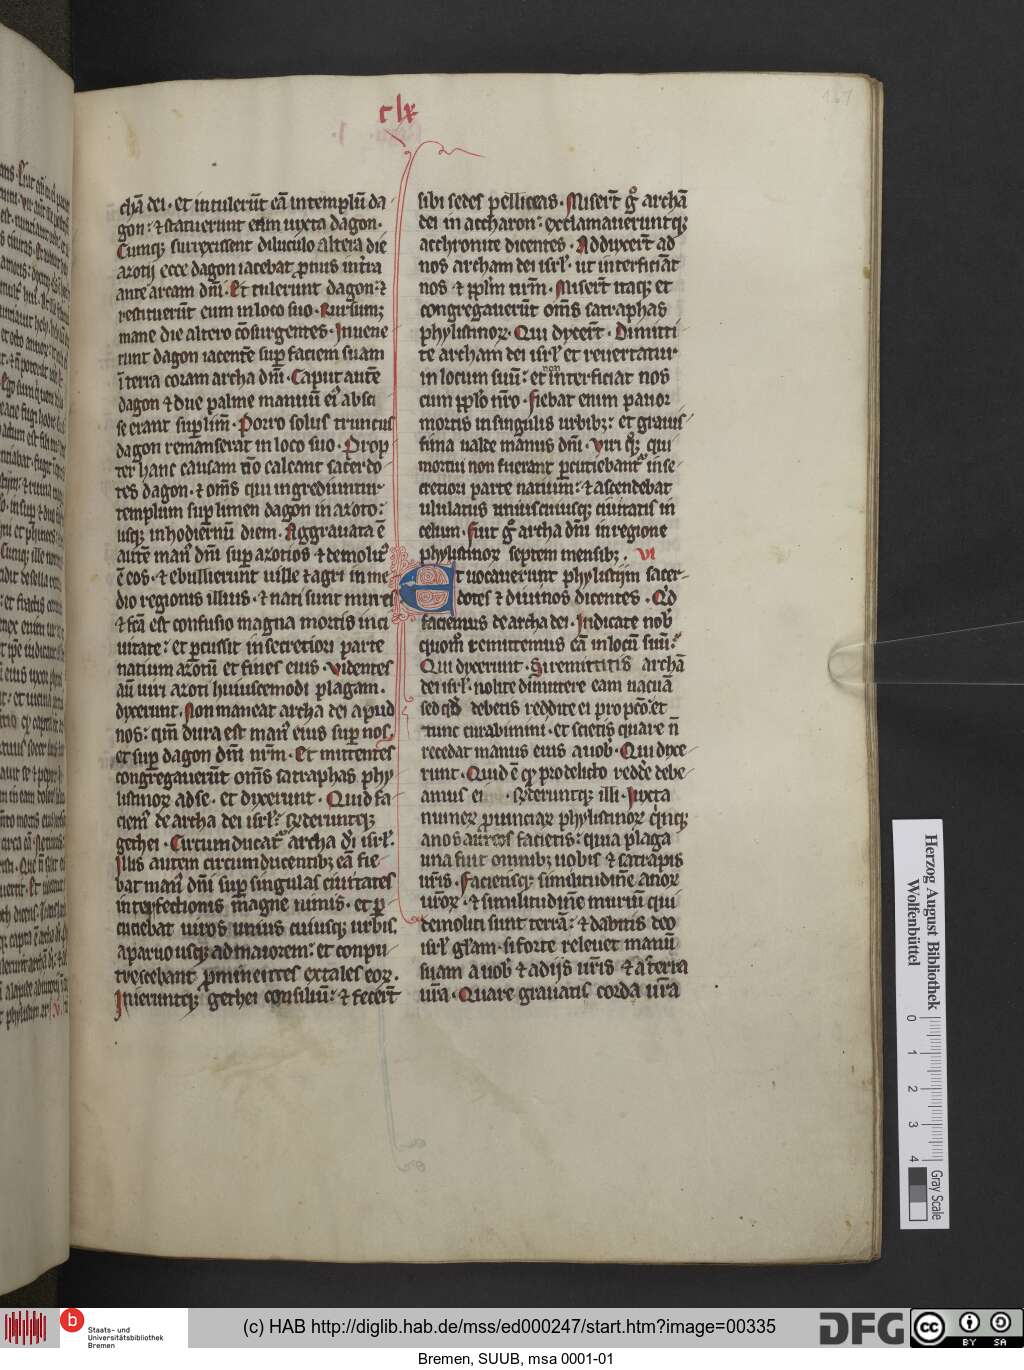 clx
chā dei · et intulerūt eā in templū da
gon : ⁊ statuerunt eam iuxta dagon ·
Cumqꝫ surrexissent diluculo altera die
azotij ecce dagon iacebat pronus in trra
ante arcam dnī · Et tulerunt dagon : ⁊
restituerūt eum in loco suo · Rursumqꝫ
mane die altero cōsurgentes · Inuene
runt dagon iacentē sup faciem suam
ī terra coram archa dnī · Caput autē
dagon ⁊ due palme manuum eiꝰ absci
se erant sup limē · Porro solus truncus
dagon remanserat in loco suo · Prop
ter hanc causam nō calcant sacerdo
tes dagon · ⁊ om̄s qui ingrediuntur
templum sup limen dagon in azoto :
usqꝫ in hodiernū diem · Aggrauata ē
autē manꝰ dnī sup azotios ⁊ demolitꝰ
ē eos · ⁊ ebullierunt uille ⁊ agri in me
dio regionis illius · ⁊ nati sunt mures
⁊ fcā est confusio magna mortis in ci
uitate : et percussit in secretiori parte
natium azotū et fines eius · Videntes
aū uiri azoti huiuscemodi plagam ·
dixerunt · Non maneat archa dei apud
nos : qm̄ dura est manꝰ eius sup nos ·
et sup dagon dm̄ nrm̄ · Et mittentes
congregauerūt om̄s satraphas phy
listinoꝝ ad se · et dixerunt · Quid fa
ciemꝰ de archa dei isrl ·
gethei · Circumducatꝰ archa di isrl ·
Illis autem circumducentibꝫ eā fie
bat manꝰ dnī sup singulas ciuitates
interfectionis magne nimis · et per
cutiebat uiros unius cuiusqꝫ urbis ·
a paruo usqꝫ ad maiorem : et conpu
trescebant prominentes extales eoꝝ ·
Inieruntqꝫ gethei consiliū : ⁊ fecerūt
sibi sedes pelliceas · Miserūt gͦ archā
dei in accharon : exclamaueruntqꝫ
acchronite dicentes · Adduxerūt ad
nos archam dei isrl · ut interficiāt
nos ⁊ pplm̄ nrm̄ · Miserūt itaqꝫ et
congregauerūt om̄s satraphas
phylistinoꝝ · Qui dixerūt · Dimitti
te archam dei isrl et reuertatur
in locum suū : et non interficiat nos
cum pplo nro · Fiebat enim pauor
mortis in singulis urbibꝫ : et grauis
sima ualde manus dnī · Viri qꝫ qui
mortui non fuerant percutiebantꝰ in se
cretiori parte natium : ⁊ ascendebat
ululatus uniuscuiusqꝫ ciuitatis in
celum · Fuit gͦ archa dnī in regione
phylistinoꝝ septem mensibꝫ · VI
Et uocauerunt phylistijm sacer
dotes ⁊ diuinos dicentes · Qd
faciemus de archa dei · Indicate nobꝭ
quom̄ remittemus eā in locū suū :
Qui dixerunt · Si remittitis archā
dei isrl · nolite dimittere eam uacuā
sed debetis reddite ei pro pcō · et
tunc curabimini · et scietis quare n̄
recedat manus eius a uobꝭ · Qui dixe
runt · Quid ē qd pro delicto redde debe
amus ei · illi · Juxta
numeꝝ prouinciaꝝ phylistinoꝝ qinqꝫ
anos aureos facietis : quia plaga
una fuit omnibꝫ uobis ⁊ satrapis
uris · Facietisqꝫ similitudine anoꝝ
uroꝝ · ⁊ similitudine murium qui
demoliti sunt terrā : ⁊ dabitis deo
isrl glam · si forte releuet manū
suam a uobꝭ ⁊ a dijs uris ⁊ a terra
ura · Quare grauatis corda ura
Herzog August Bibliothek
Wolfenbüttel
0 1 2 3 4
Gray Scale
b Staats- und
Universitätsbibliothek
Bremen
(c) HAB http://diglib.hab.de/mss/ed000247/start.htm?image=00335
DFG
cc BY SA
Bremen, SUUB, msa 0001-01